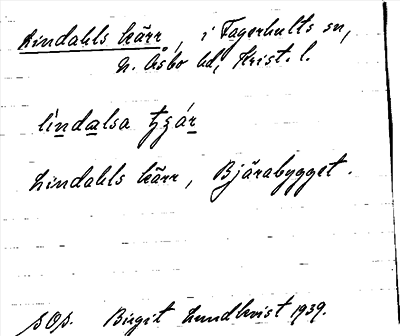 Lindahls kärr, i Fagerhults sn,
N. Åsbo hd, Krist. l.
lindalsa tzär
Lindahls kärr, Bjärabygget.
sOp. Birgit Lundkvist 1939.